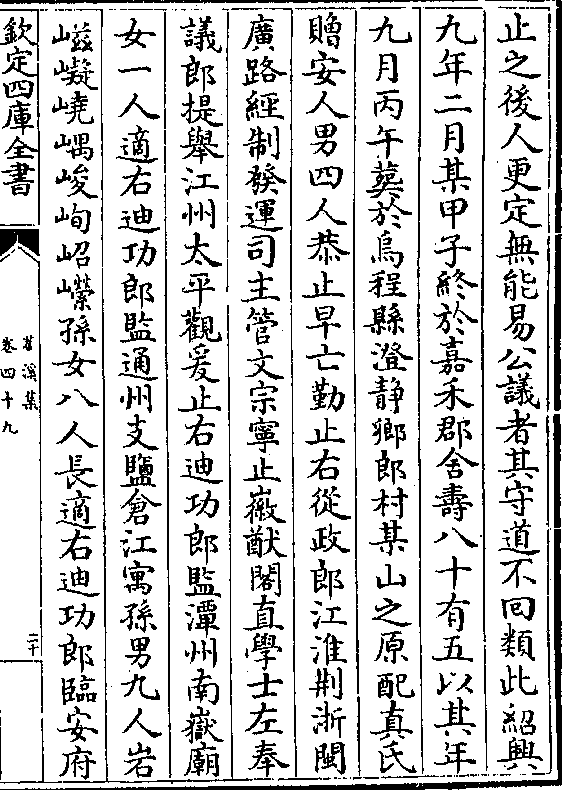 止之後人更定無能易公議者其守道不回類此紹興
九年二月某甲子終於嘉禾郡舍壽八十有五以其年
九月丙午葬於烏程縣澄静鄉郎村某山之原配真氏
贈安人男四人恭止早亡勤止右從政郎江淮荆浙閩
廣路經制發運司主管文宗寧止徽猷閣直學士左奉
議郎提舉江州太平觀爰止右迪功郎監潭州南嶽廟
女一人適右迪功郎監通州支鹽倉江寓孫男九人岩
嵫嶷嶢嵎峻峋岧嶸孫女八人長適右迪功郎臨安府
欽定四庫全書
苕溪集
卷四十九
二十